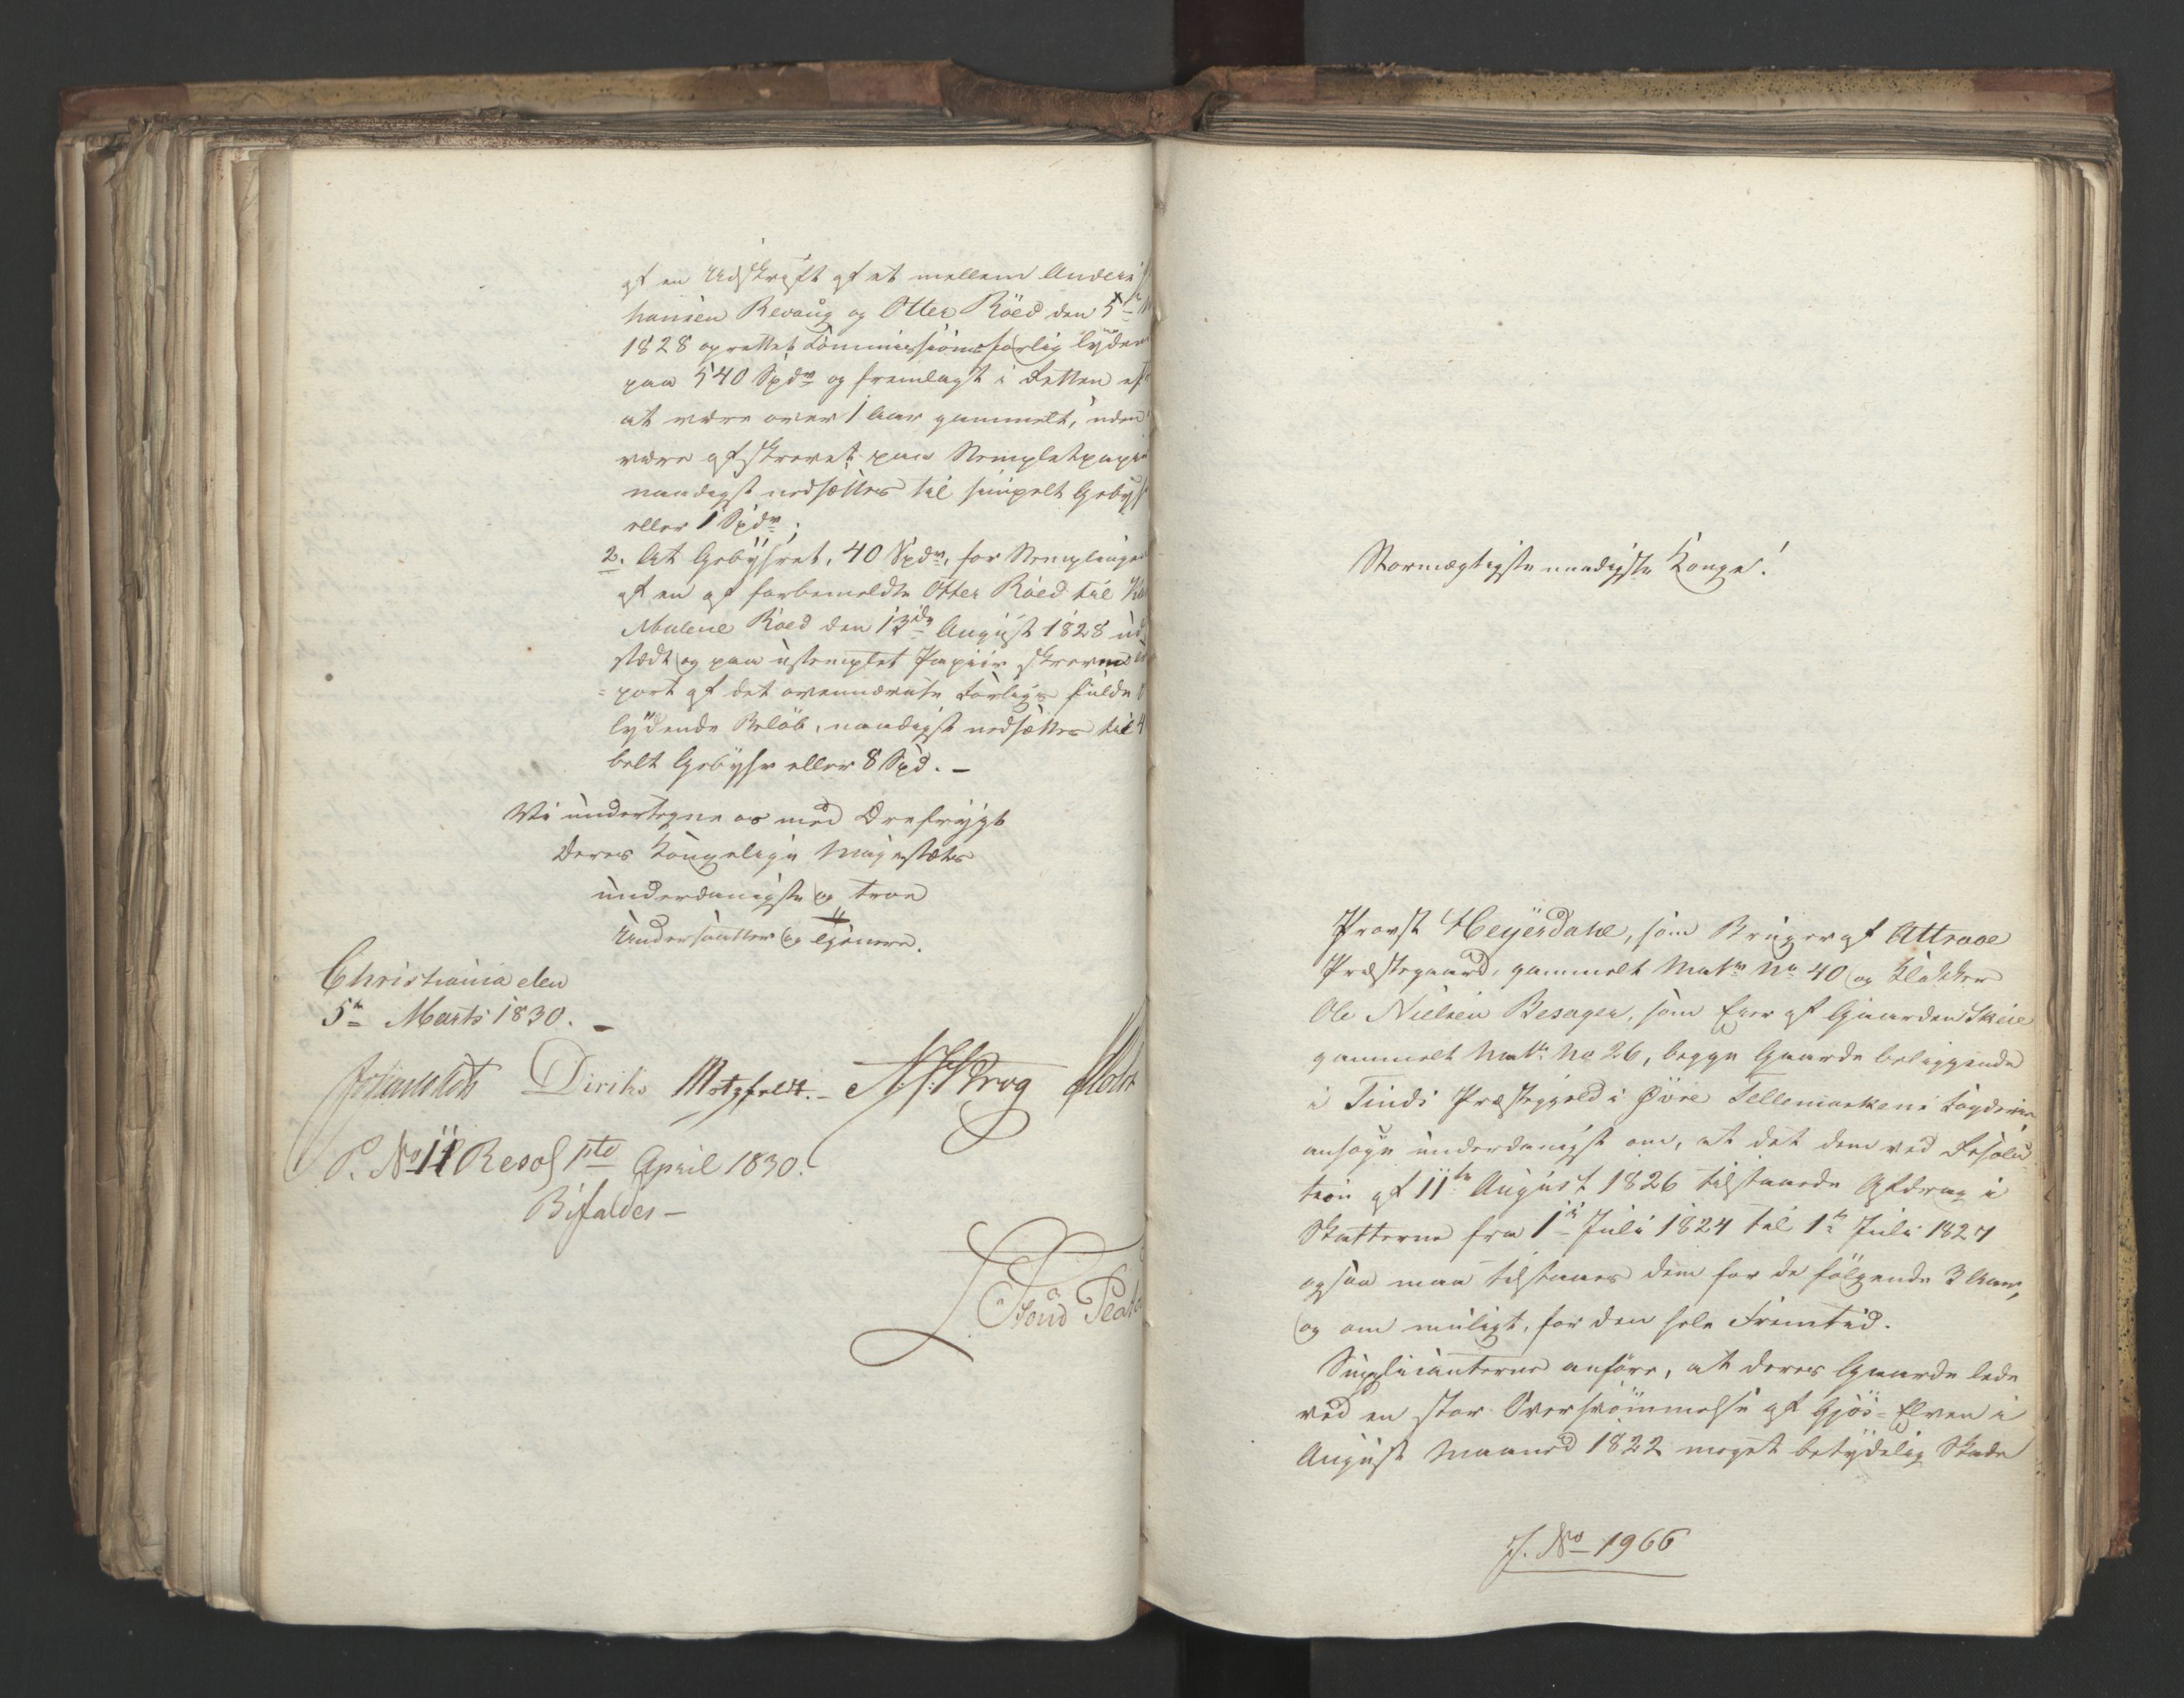 af en Udskrift af et mellem Anders
hansen Revaug og Otter Röed den 5te
1828 oprettet Commissionsforlig lyden
paa 540 Spdr og fremlagt i Retten ef
at være over 1 Aar gammelt, uden
være afskrevet paa Stempletpapi
naadigst nedsættes til simpelt Gebyh
eller 1 Spdr;
2. At Gebyhret, 40 Spdr, for Stemplingen
af en af forbemeldte Otter Röed til
Malene Röed den 13de August 1828 ud
stædt og paa ustemplet Papiir skreven
port af det ovennævnte Forligs fulde
lydende Beløb, naadigst nedsættes til 4
belt Gebyhr eller 8 Spd. -
Vi undertegne os med Ærefrygt
Deres Kongelige Majestæts
underdanigste og troe
Undersaatter og Tjenere.
Christiania den
5te Marts 1830. -
Diriks Motzfeldt. - Krog
P. No 11 Resol 1ste April 1830.
Bifaldes -
Stormægtigste naadigste Konge!
Provst Heyerdahl, som Bruger af Attraae
Præstegaard, gammelt Matr No 40 og Klokker
Ole Nielsen Besager, som Eier af Gaarden Skeie
gammelt Matr: No 26, begge Gaarde beliggende
i Tinds Præstegjeld i Øvre Tellemarkens Fogderie
ansøge underdanigst om, at det dem ved Resolu
tion af 11te August 1826 tilstaaede Afdrag i
Skatterne fra 1te Juli 1824 til 1te Juli 1827
ogsaa maa tilstaaes dem for de følgende 3 Aar,
og om muligt, for den hele Fremtid.
Supplicanterne anføre, at deres Gaarde lede
ved en stor Oversvømmelse af Gjös-Elven i
August Maaned 1822 meget betydelig Skade
J. No 1966